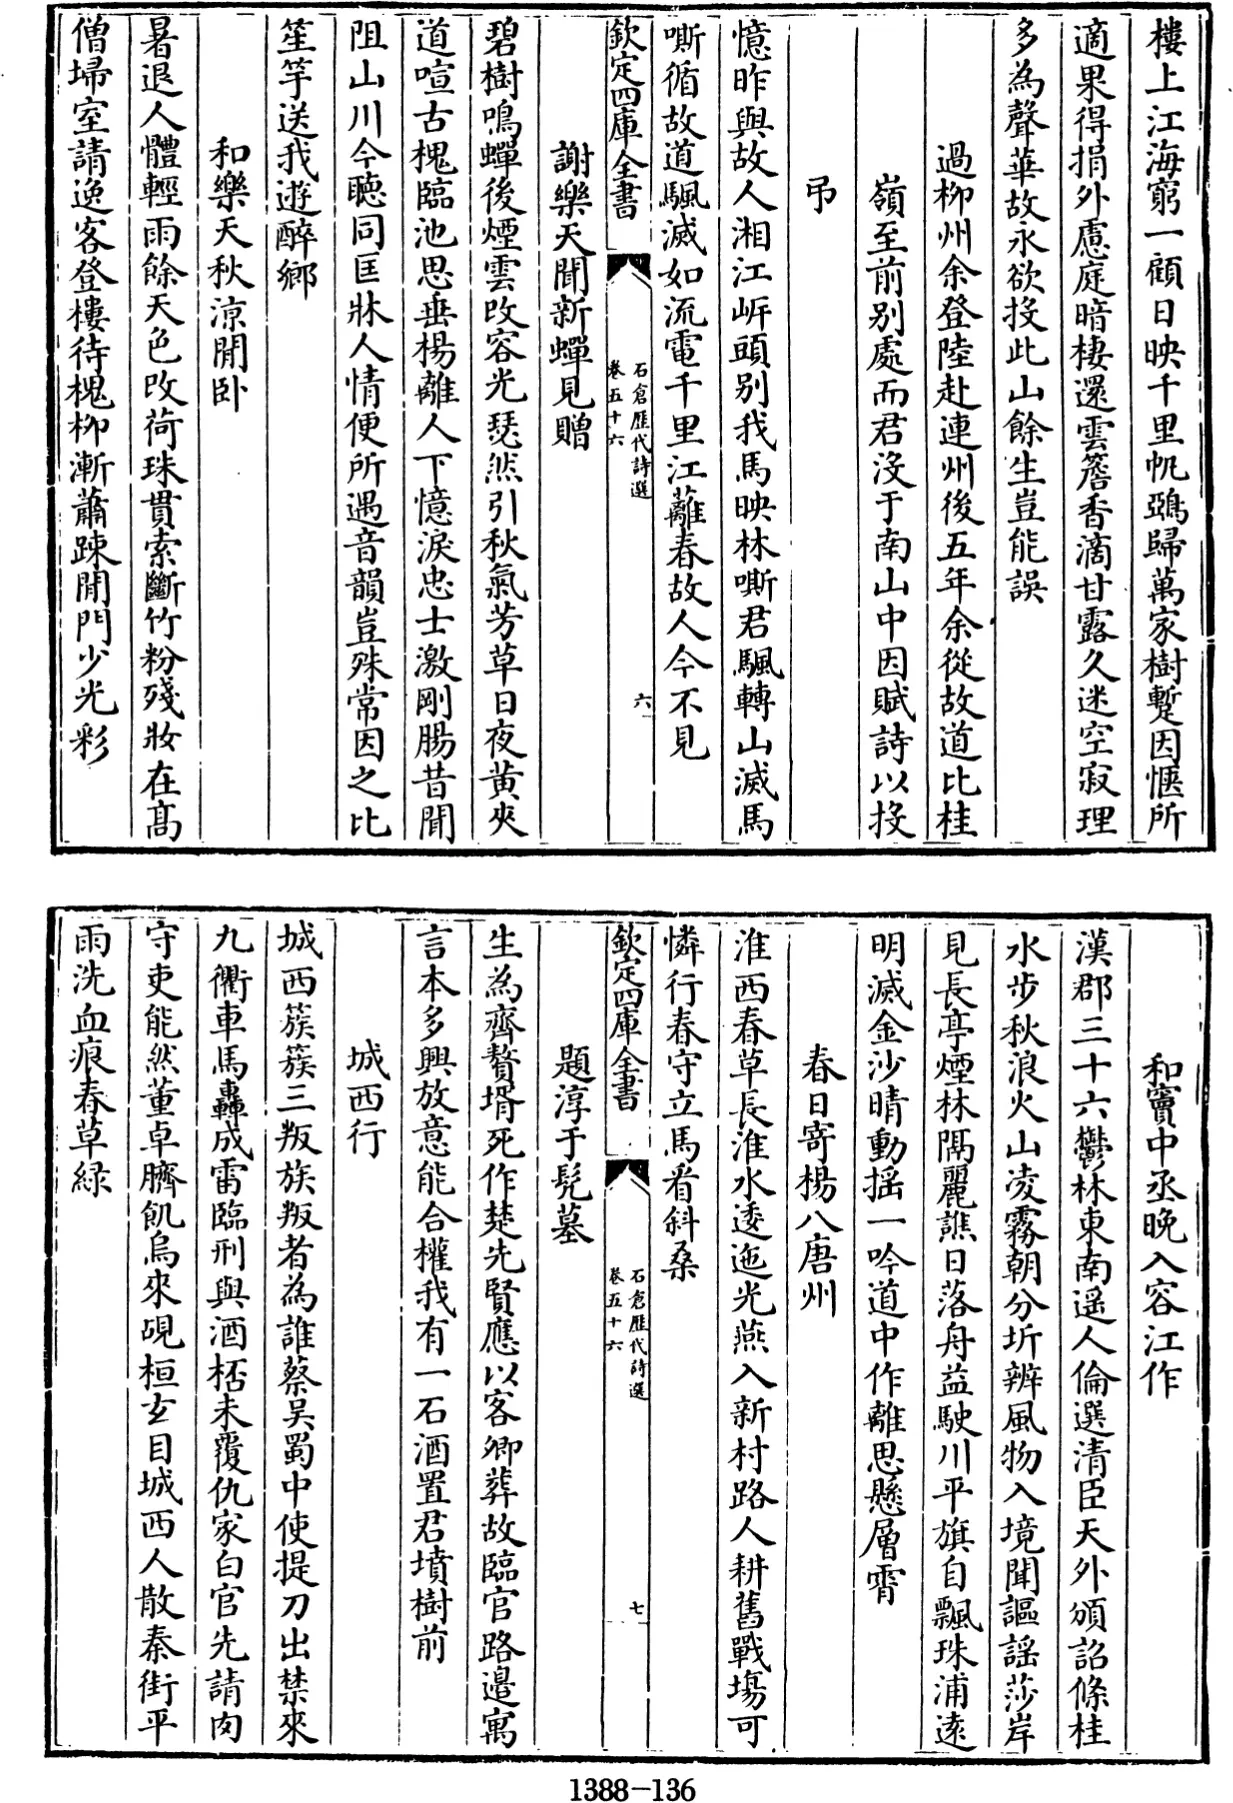 樓上江海窮一顧日映千里帆鵶歸萬家樹蹔因愜所
適果得捐外慮庭暗棲還雲簷香滴甘露久迷空寂理
多為聲華故永欲投此山餘生豈能誤
過柳州余登陸赴連州後五年余從故道比桂
嶺至前别處而君沒于南山中因賦詩以投
弔
憶昨與故人湘江岍頭别我馬映林嘶君颿轉山滅馬
嘶循故道颿滅如流電千里江蘺春故人今不見
欽定四庫全書
石倉歷代詩選
卷五十六
六
謝樂天聞新蟬見贈
碧樹鳴蟬後煙雲改容光瑟然引秋氣芳草日夜黃夾
道喧古槐臨池思垂楊離人下憶淚忠士激剛腸昔聞
阻山川今聽同匡牀人情便所遇音韻豈殊常因之比
笙竽送我遊醉鄉
和樂天秋涼閒卧
暑退人體輕雨餘天色改荷珠貫索斷竹粉殘妝在髙
僧埽室請逸客登樓待槐柳漸蕭踈閒門少光彩
和竇中丞晚入容江作
漢郡三十六鬱林東南遥人倫選清臣天外頒詔條桂
水步秋浪火山凌霧朝分圻辨風物入境聞謳謡莎岸
見長亭煙林隔麗譙日落舟益駛川平旗自飄珠浦逺
明滅金沙晴動揺一吟道中作離思懸層霄
春日寄楊八唐州
淮西春草長淮水逶迤光燕入新村路人耕舊戰塲可
憐行春守立馬看斜桑
欽定四庫全書
石倉歷代詩選
卷五十六
七
題淳于髠墓
生為齊贅壻死作楚先賢應以客卿葬故臨官路邉寓
言本多興放意能合權我有一石酒置君墳樹前
城西行
城西簇簇三叛族叛者為誰蔡吴蜀中使提刀出禁來
九衢車馬轟成雷臨刑與酒桮未覆仇家白官先請肉
守吏能然董卓臍飢烏來覘桓玄目城西人散秦街平
雨洗血痕春草緑
1388-136